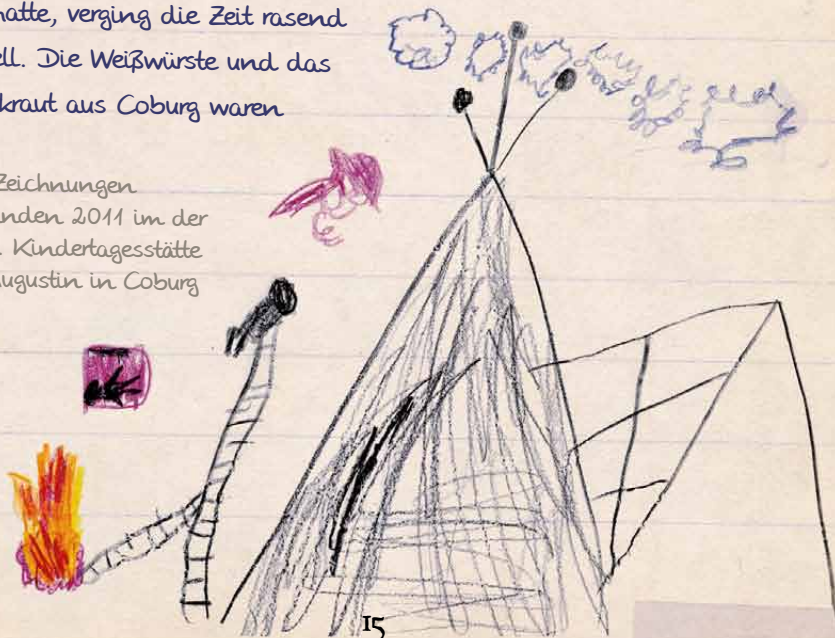 hatte, verging die Zeit rasend
ell. Die Weißwürste und das
kraut aus Coburg waren
Zeichnungen
nden 2011 im der
. Kindertagesstätte
ugustin in Coburg
15